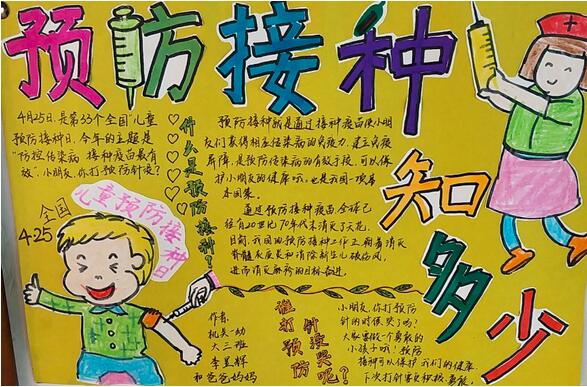 预防接种
知多少
4月25日,是第33个全国"儿童
预防接种日,今年的主题是
"防控传染病 接种疫苗最有
效".小朋友,你打预防针没?
什么是预防接种?
预防接种就是通过接种疫苗使小朋
友们获得相应传染病的免疫力,建立免疫
屏障,是预防传染病的有效手段,可以保
护小朋友的健康哦,也是我国一项基
本国策。
通过预防接种疫苗,全球已
经在20世纪70年代末消灭了天花,
目前,我国的预防接种工作正朝着消灭
脊髓灰质炎和消除新生儿破伤风,
进而消灭麻疹的目标奋进。
全国
4.25
儿童预防接种日
作者:
机关一幼
大三班
李
和爸爸妈妈
谁打预防针没哭呢?
小朋友,你打预防
针的时候哭了吗?
大家要做一个勇敢的
小孩子哦!预防
接种可以保护我们的健康
下次打针要更积极、勇敢。